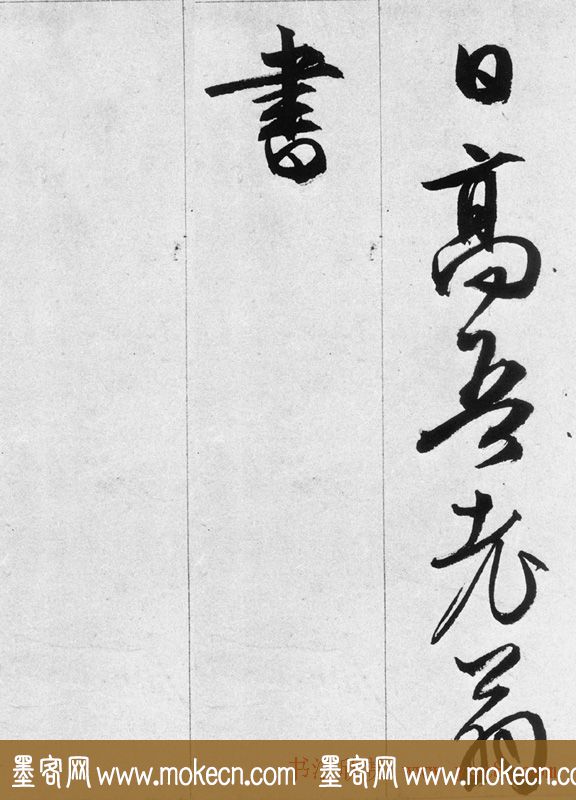 日高吾老翁
書
墨客网 www.mokecn.com 墨客网 www.mokecn.com